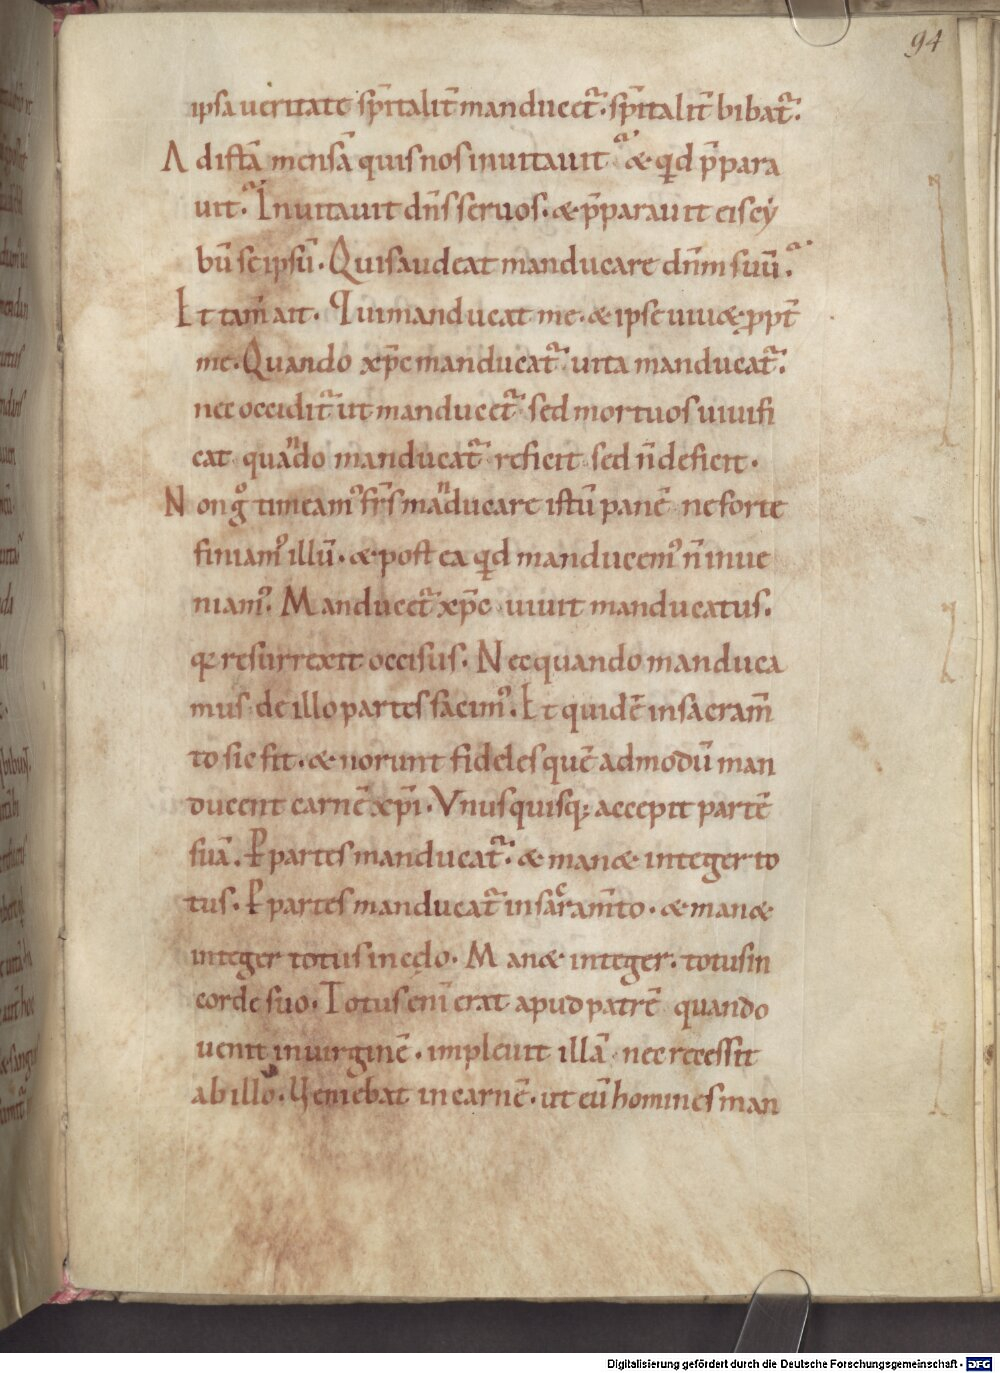 94
ipsa ueritate sp̄italit̄ manducet᷑. sp̄italit̄ bibat᷑.
Ad istā mensā quis nos inuitauit & qd p̄para
uit. Inuitauit dn̄s seruos. & p̄parauit eis cy
bū se ipsū. Quis audeat manducare dn̄m suū.
Et tam̄ ait. Qui manducat me. & ipse uiu& ꝓpt̄
me. Quando xp̄c manducat᷑ uita manducat᷑.
nec occidit᷑ ut manducet᷑ sed mortuos uiuifi
cat quando manducat᷑ reficit sed n̄ deficit.
Non gͦ timeamꝰ fr̄s manducare istū panē ne forte
finiamꝰ illū. & post ea qd manducemꝰ n̄ inue
niamꝰ. Manducet᷑ xp̄c uiuit manducatus.
q̨ resurrexit occisus. Nec quando manduca
mus de illo partes facimꝰ. Et quidē in sacram̄
to sic fit. & norunt fideles quē admodū man
ducent carnē xp̄i. Vnusquisq; accepit partē
suā. P̲ partes manducat᷑. & man& integer to
tus. P̲ partes manducat᷑ in sacram̄to. & man&
integer totus in cęlo. Man& integer. totus in
corde suo. Totus enī erat apud patrē quando
uenit in uirginē. impleuit illā nec recessit
ab illo. Ueniebat in carnē. ut eū homines man
Digitalisierung gefördert durch die Deutsche Forschungsgemeinschaft - DFG